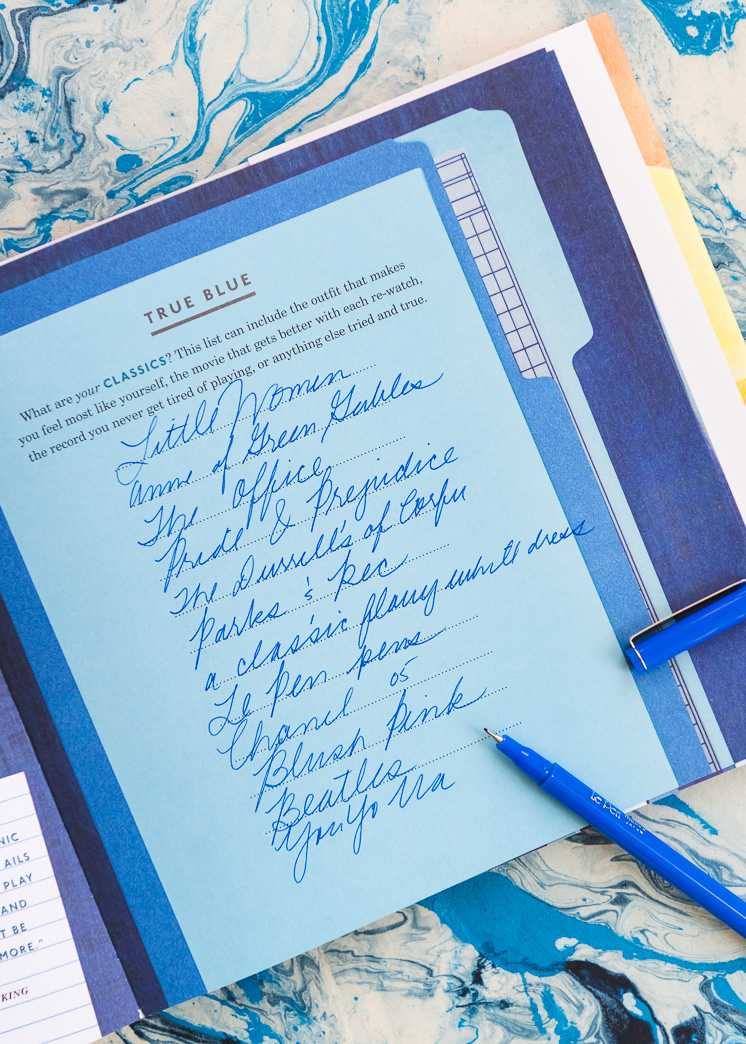 TRUE BLUE
What are your CLASSICS? This list can include the outfit that makes
you feel most like yourself, the movie that gets better with each re-watch,
the record you never get tired of playing, or anything else tried and true.
Little Women
Anne of Green Gables
The Office
Pride & Prejudice
The Durrell's of Corfu
Parks & Rec
a classic flowy white dress
Le Pen pens
Chanel 05
Blush Pink
Beatles
YoYo Ma
NIC
AILS
PLAY
AND
T BE
MORE."
KING
Le Pen